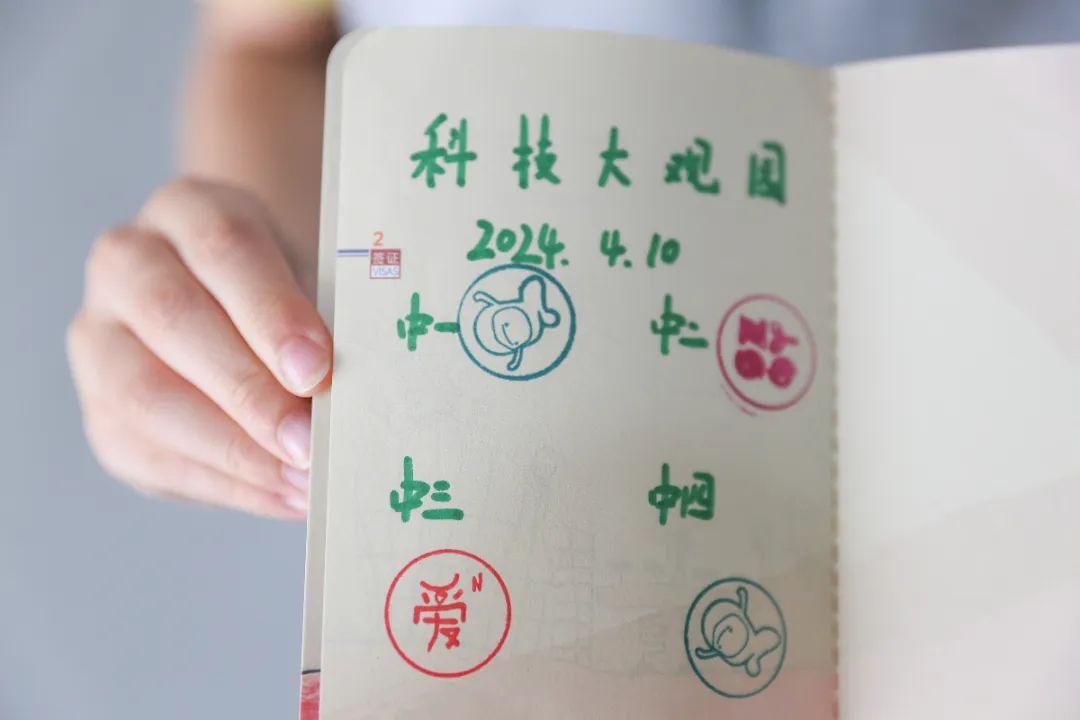 科技大观园
2024.4.10
2
签证
VISAS
中一 中二
中三 中四
爱N